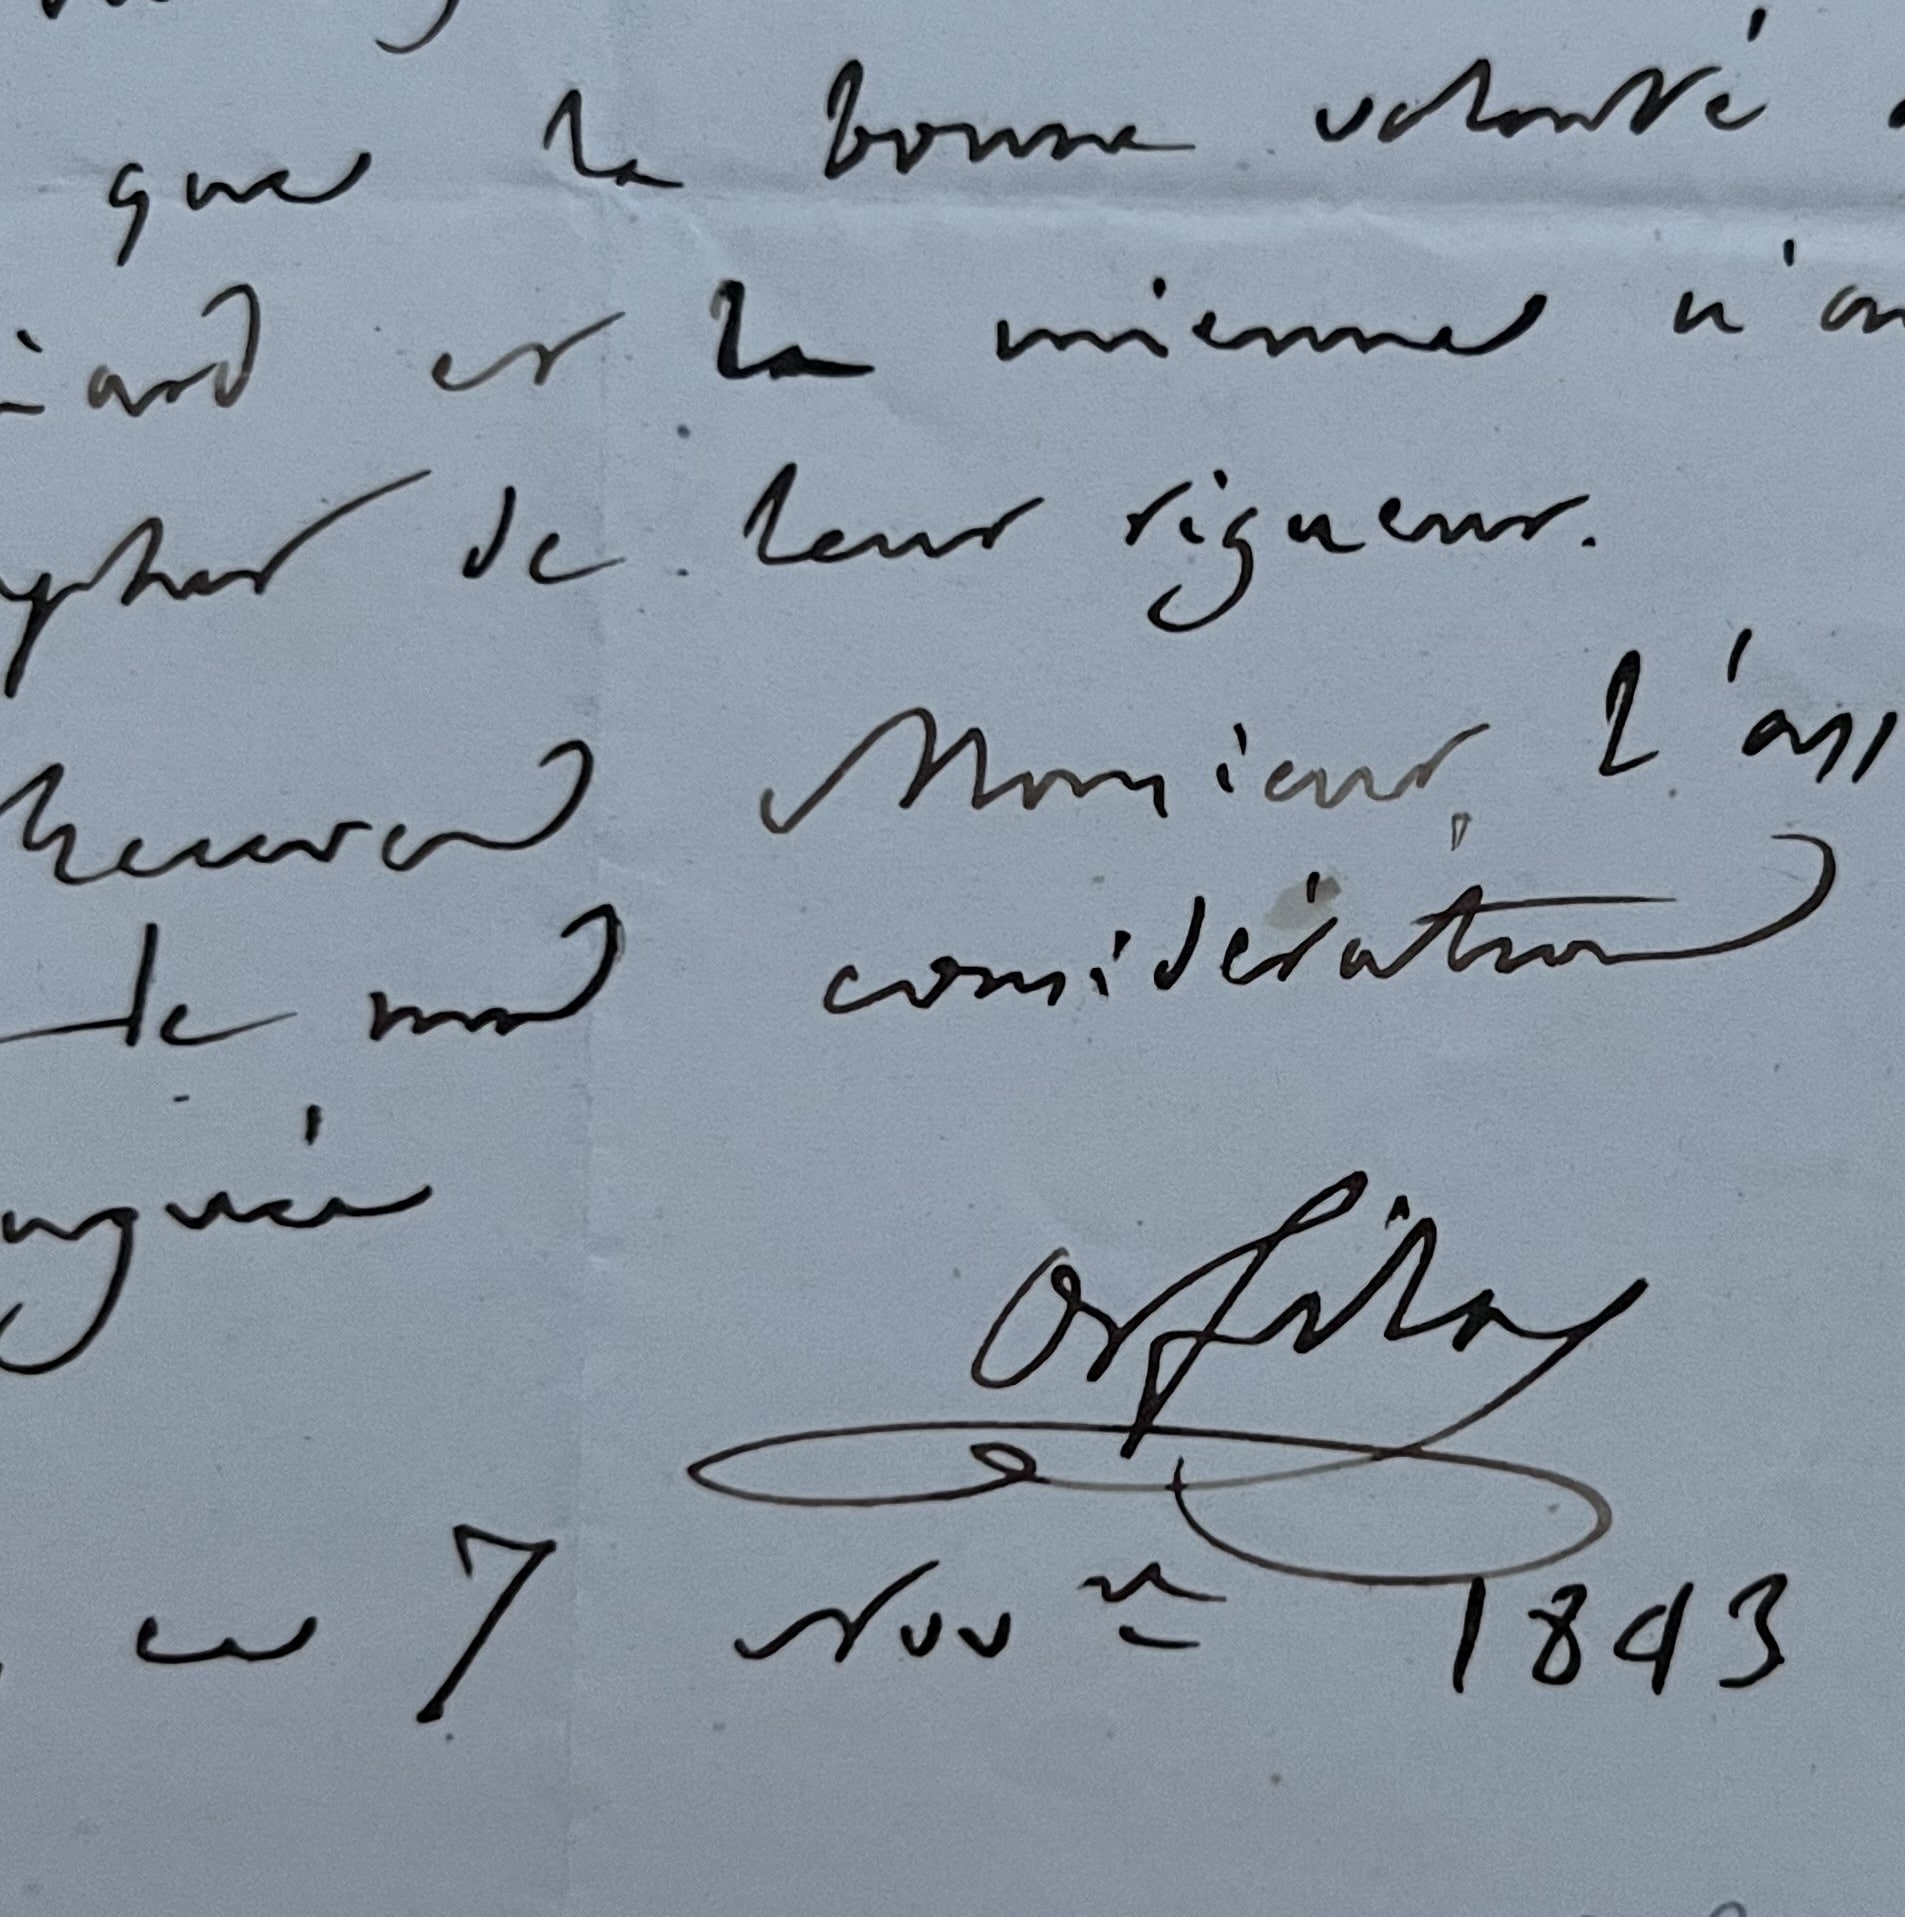 que la bonne volonté
iard et la mienne n'on
mpher de leur rigueur.
Recevez Monsieur, l'ass
de ma considération
inguée
Orfila
ce 7 Novbre 1843